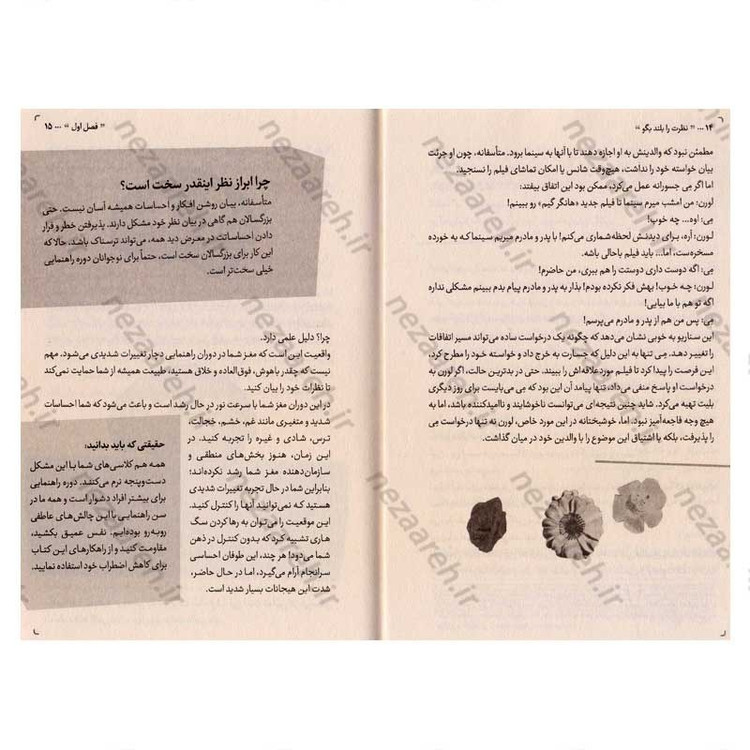 ۱۴ ... " نظرت را بلند بگو "
مطمئن نبود که والدینش به او اجازه دهند تا با آنها به سینما برود. متأسفانه، چون او جرئت
بیان خواسته خود را نداشت، هیچ‌وقت شانس یا امکان تماشای فیلم را نسنجید.
اما اگر مِی جسورانه عمل می‌کرد، ممکن بود این اتفاق بیفتد:
لورن: من امشب میرم سینما تا فیلم جدید «هانگر گیم» رو ببینم!
مِی: اوه... چه خوب!
لورن: آره، برای دیدنش لحظه‌شماری می‌کنم! با پدر و مادرم میریم سینما که یه خورده
مسخره‌ست، اما... باید فیلم باحالی باشه.
مِی: اگه دوست داری دوستت را هم ببری، من حاضرم!
لورن: چه خوب! بهش فکر نکرده بودم! بذار به پدر و مادرم پیام بدم ببینم مشکلی نداره
اگه تو هم با ما بیایی!
مِی: پس من هم از پدر و مادرم می‌پرسم!
این سناریو به خوبی نشان می‌دهد که چگونه یک درخواست ساده می‌تواند مسیر اتفاقات
را تغییر دهد. مِی تنها به این دلیل که جسارت به خرج داد و خواسته خود را مطرح کرد،
این فرصت را پیدا کرد تا فیلم موردعلاقه‌اش را ببیند. حتی در بدترین حالت، اگر لورن به
درخواست او پاسخ منفی می‌داد، تنها پیامد آن این بود که مِی می‌بایست برای روز دیگری
بلیت تهیه می‌کرد. شاید چنین نتیجه‌ای می‌توانست ناخوشایند و ناامیدکننده باشد، اما به
هیچ وجه فاجعه‌آمیز نبود. اما، خوشبختانه در این مورد خاص، لورن نه تنها درخواست مِی
را پذیرفت، بلکه با اشتیاق این موضوع را با والدین خود در میان گذاشت.
" فصل اول " ... ۱۵
چرا ابراز نظر اینقدر سخت است؟
متأسفانه، بیان روشن افکار و احساسات همیشه آسان نیست. حتی
بزرگسالان هم گاهی در بیان نظر خود مشکل دارند. پذیرفتن خطر و قرار
دادن احساساتت در معرض دید همه، می‌تواند ترسناک باشد. حالا که
این کار برای بزرگسالان سخت است، حتماً برای نوجوانان دوره راهنمایی
خیلی سخت‌تر است.
چرا؟ دلیل علمی دارد.
واقعیت این است که مغز شما در دوران راهنمایی دچار تغییرات شدیدی می‌شود. مهم
نیست که چقدر باهوش، فوق‌العاده و خلاق هستید، طبیعت همیشه از شما حمایت نمی‌کند
تا نظرات خود را بیان کنید.
در این دوران مغز شما با سرعت نور در حال رشد است و باعث می‌شود که شما احساسات
شدید و متغیری مانند غم، خشم، خجالت،
ترس، شادی و غیره را تجربه کنید. در
این زمان، هنوز بخش‌های منطقی و
سازمان‌دهنده مغز شما رشد نکرده‌اند؛
بنابراین شما در حال تجربه تغییرات شدیدی
هستید که نمی‌توانید آنها را کنترل کنید.
این موقعیت را می‌توان به رها کردن سگ
هاری تشبیه کرد که بدون کنترل در ذهن
شما می‌دود! هر چند، این طوفان احساسی
سرانجام آرام می‌گیرد، اما در حال حاضر،
شدت این هیجانات بسیار شدید است.
حقیقتی که باید بدانید:
همه هم کلاسی‌های شما با این مشکل
دست‌وپنجه نرم می‌کنند. دوره راهنمایی
برای بیشتر افراد دشوار است و همه ما در
سن راهنمایی با این چالش‌های عاطفی
روبه‌رو بوده‌ایم. نفس عمیق بکشید،
مقاومت کنید و از راهکارهای این کتاب
برای کاهش اضطراب خود استفاده نمایید.
nezaareh.ir